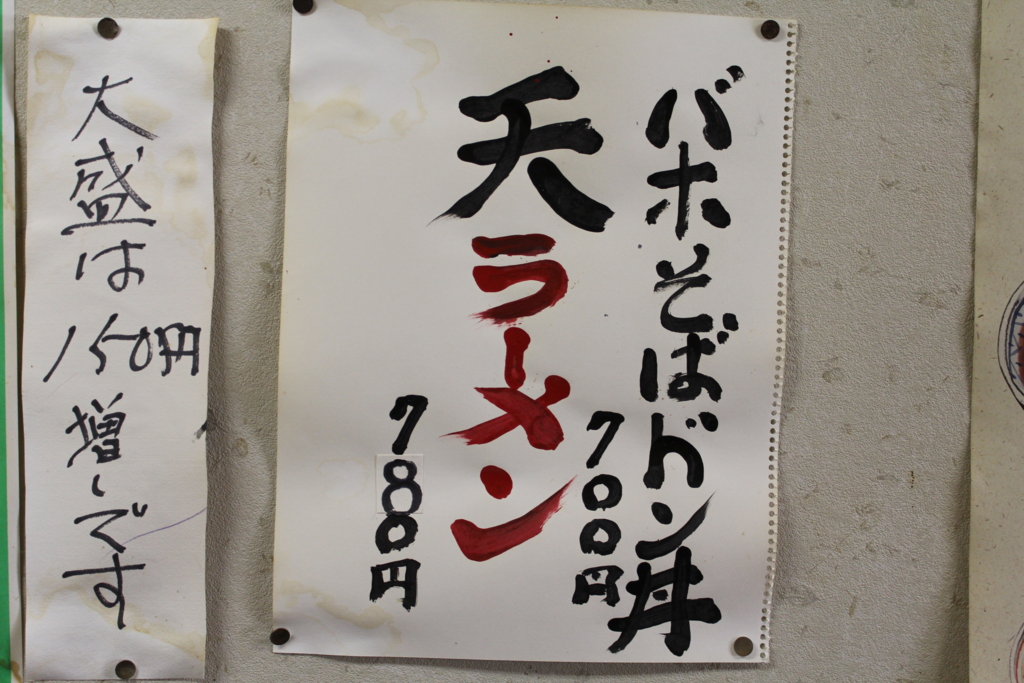 バホそばドン丼
700円
天ラーメン
780円
大盛は
150円
増しです